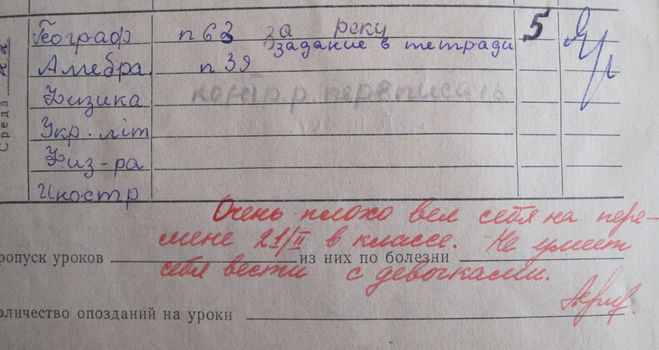 Среда
Географ п 63 за реку 5
задание в тетради
Алгебра п 39
Физика контр.р. переписать
Укр. літ
Физ-ра
Иностр
Очень плохо вел себя на пере-
мене 21/II в классе. Не умеет
ропуск уроков из них по болезни
себя вести с девочками.
оличество опозданий на уроки